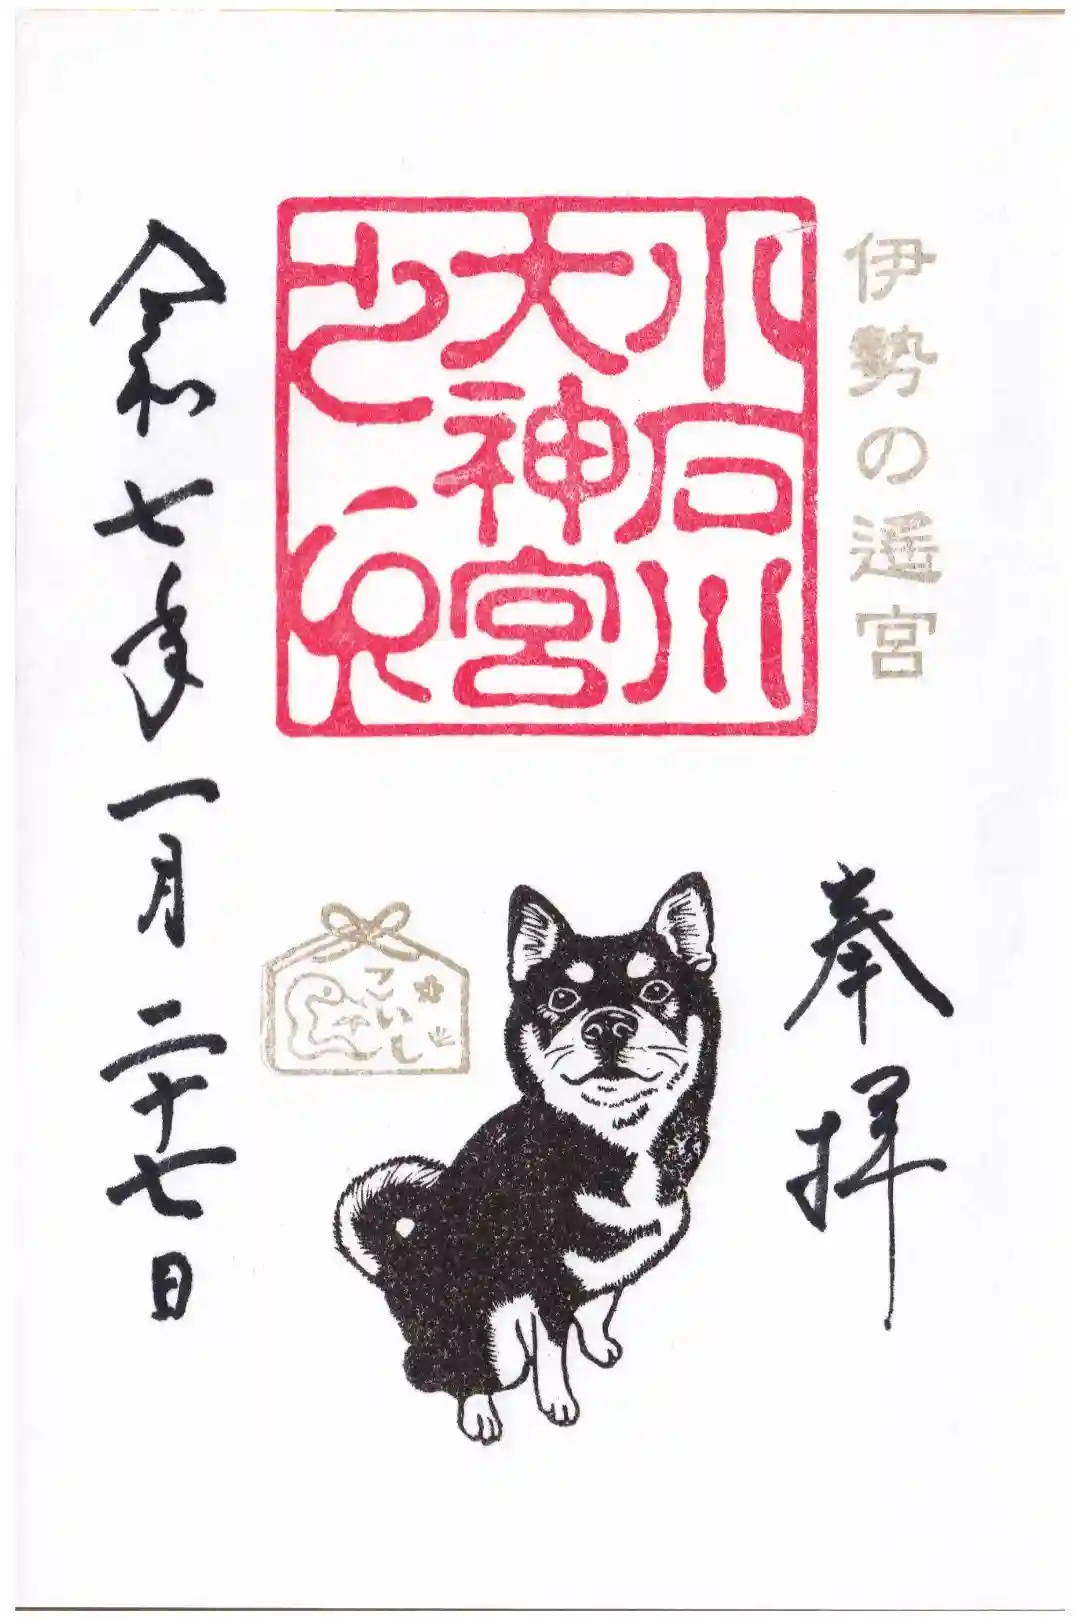 伊勢の遙宮
奉拝
小石川
大神宮
こいし
令和七年一月二十七日